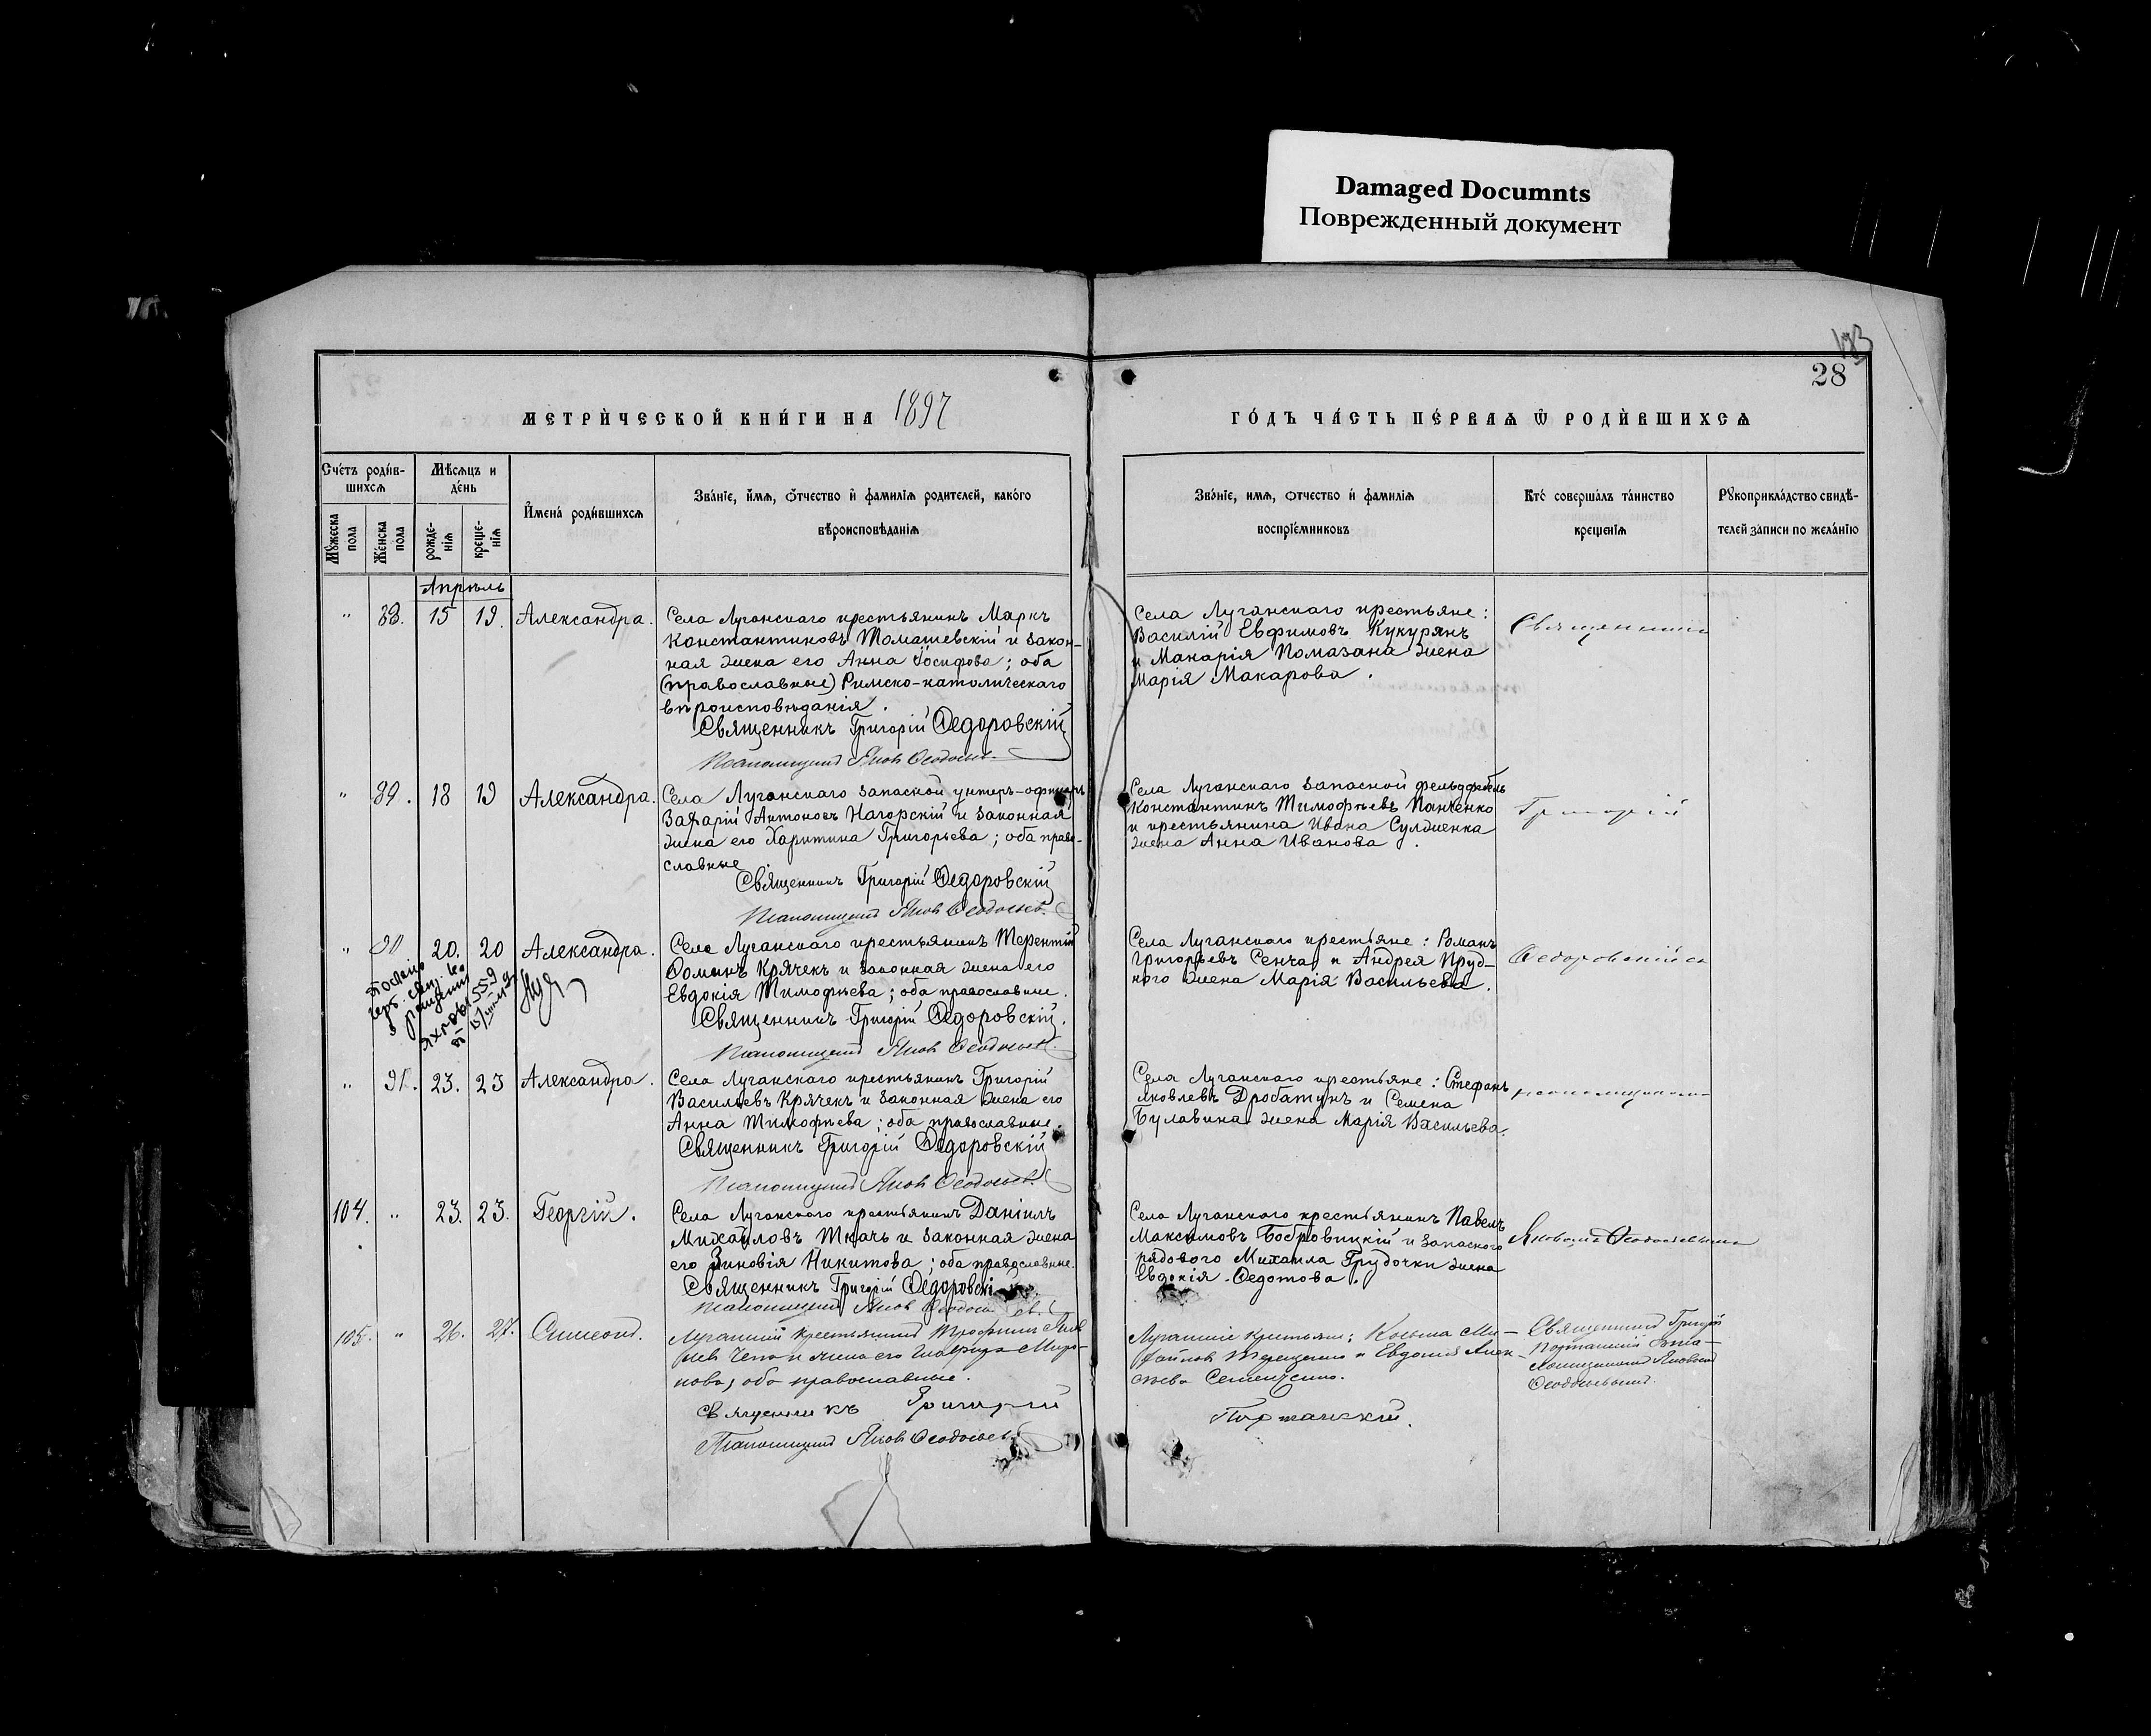 Damaged Documnts
Поврежденный документ
28
МЕТРИ́ЧЕСКОЙ КНИ́ГИ НА 1897
ГО́ДЪ ЧА́СТЬ ПЕ́РВАѦ Ѿ РОДИ́ВШИХСѦ
Сче́тъ роди́в-
шихсѧ
Мѣсѧцъ и
де́нь
И҆мена̀ роди́вшихсѧ
Зва́нїе, и҆мѧ, ѻ҆тчество и҆ фамилїѧ родителей, како́го
вѣроисповѣданїѧ
Зва́нїе, имѧ, ѻтчество и҆ фамилїѧ
воспрїе́мниковъ
Кто̀ соверша́лъ та́инство
крещенїѧ
Рꙋкоприкла́дство свидѣ-
телей записи по жела́нїю
Мꙋжеска
пола
Же́нска
по́ла
рожде-
нїѧ
креще-
нїѧ
Апрѣль
" 88. 15 19. Александра.
Села Луганскаго крестьянинъ Маркъ
Константиновъ Томашевскій и закон-
ная жена его Анна Іосифова; оба
(православные) Римско-католическаго
вѣроисповѣданія.
Священникъ Григорій Ѳедоровскій
Псаломщикъ Яковъ
Села Луганскаго крестьяне:
Василій Евфимовъ Кукурянъ
и Макарія Помазана жена
Марія Макарова.
Священникъ
" 89. 18 19 Александра.
Села Луганскаго запасной унтеръ-офицеръ
Захарій Антоновъ Нагорскій и законная
жена его Харитина Григорьева; оба право-
славные
Священникъ Григорій Ѳедоровскій
Псаломщикъ Яковъ
Села Луганскаго запасной фельдфебель
Константинъ Тимофѣевъ Панченко
и крестьянина Ивана Сулженка
жена Анна Иванова.
Григорій
" 90 20. 20 Александра.
Села Луганскаго крестьянинъ Терентій
Ѳоминъ Крячекъ и законная жена его
Евдокія Тимофѣева; оба православные.
Священникъ Григорій Ѳедоровскій.
Псаломщикъ Яковъ
Села Луганскаго крестьяне: Романъ
Григорьевъ Сенча и Андрея Пруд-
кого жена Марія Васильева.
Ѳедоровскій съ
" 91. 23. 23 Александра.
Села Луганскаго крестьянинъ Григорій
Васильевъ Крячекъ и законная жена его
Анна Тимофѣева; оба православные.
Священникъ Григорій Ѳедоровскій
Псаломщикъ Яковъ
Села Луганскаго крестьяне: Стефанъ
Яковлевъ Дробатунъ и Семена
Булавина жена Марія Васильева.
псаломщикомъ
104. " 23. 23. Георгій.
Села Луганскаго крестьянинъ Даніилъ
Михайловъ Ткачъ и законная жена
его Зиновія Никитова; оба православные.
Священникъ Григорій
Псаломщикъ Яковъ
Села Луганскаго крестьянинъ Павелъ
Максимовъ Бобровицкій и запаснаго
рядового Михаила Грудочки жена
Евдокія Ѳедотова.
Яковомъ
105. " 26. 27. Симеонъ.
крестьянинъ Трофимъ
и жена его
оба православные.
Священникъ Григорій
Псаломщикъ Яковъ
крестьяне: Козьма Ми-
и Евдокія
Священникъ Григорій